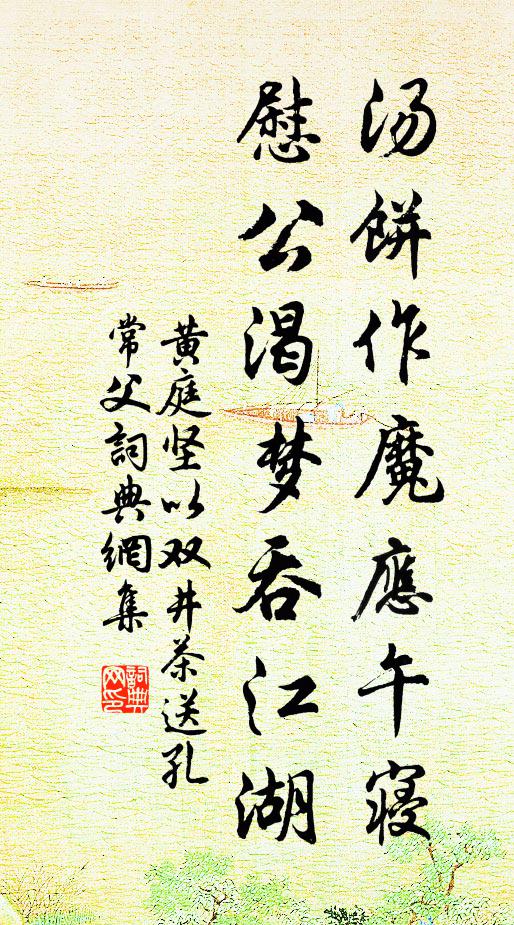 汤餅作魔應午寝
慰公渴梦吞江湖
黄庭坚以双井茶送孔
常父詞典網集
詞典网印